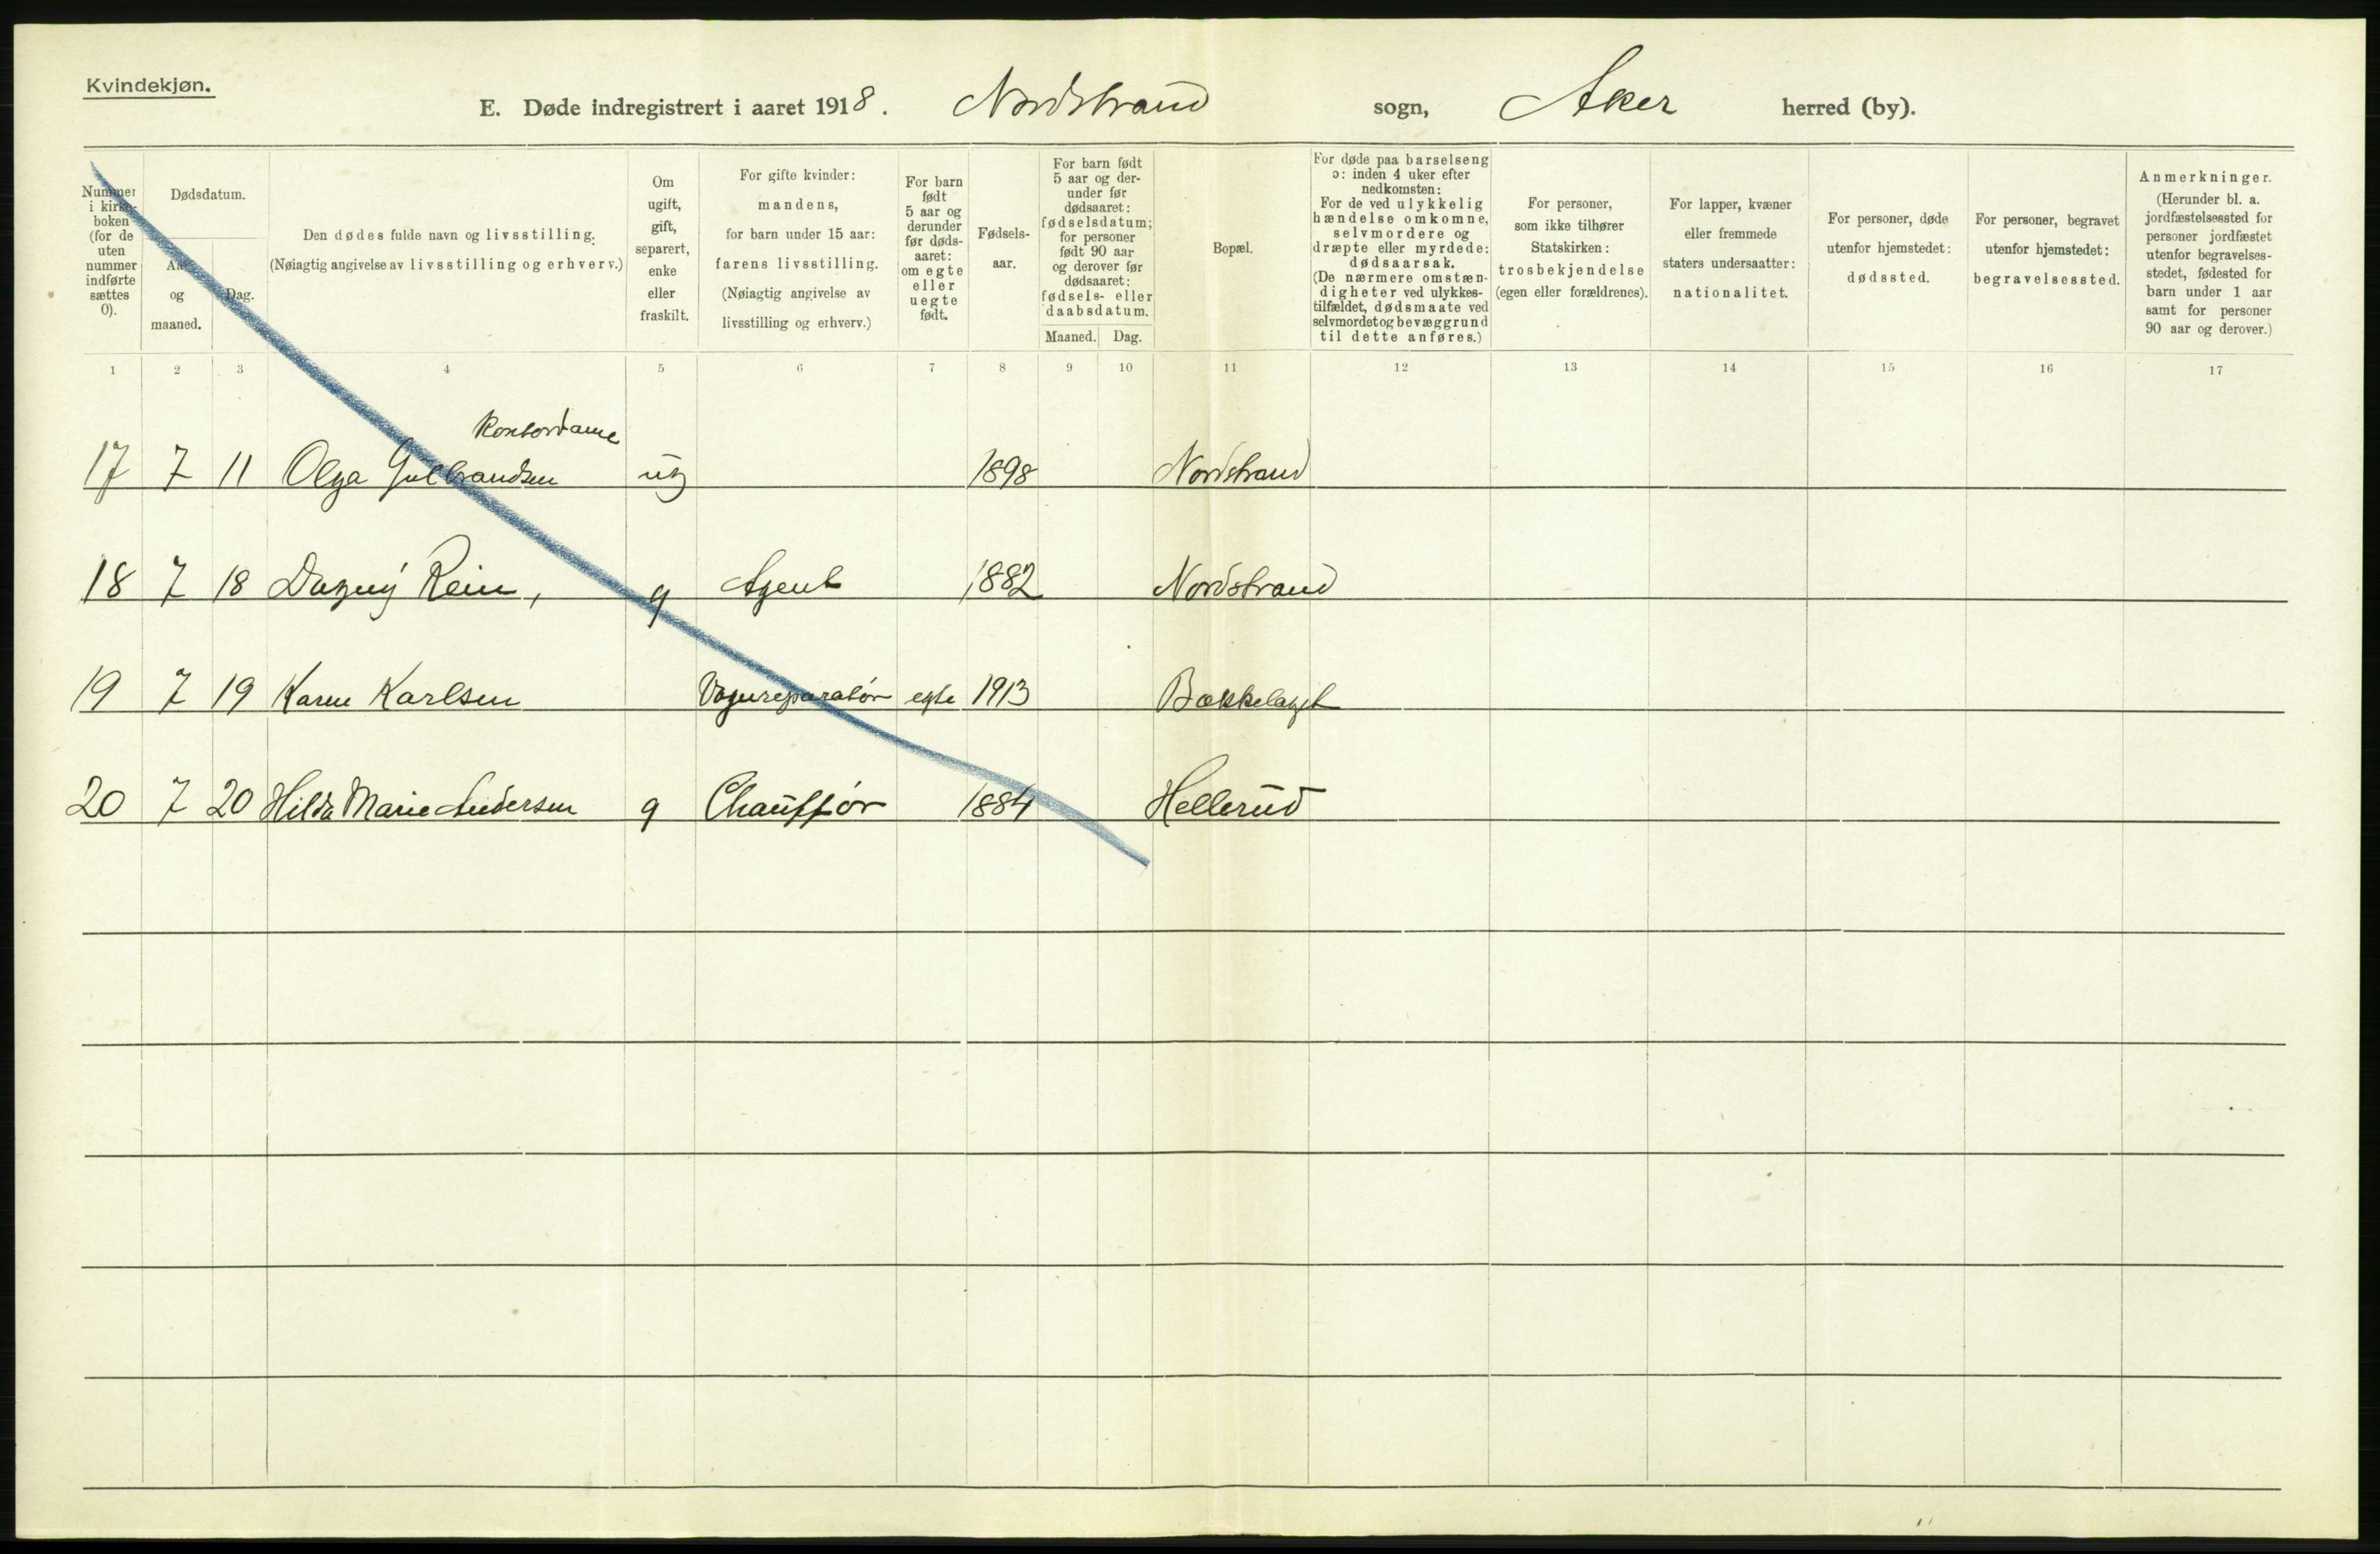 Kvindekjøn.
E. Døde indregistrert i aaret 1918. Nordstrand sogn, Aker herred (by).
Nummer i kirke-
boken
(for de
uten
nummer
indførte
sættes
0).
Dødsdatum.
Aar
og
maaned.
Dag.
Den dødes fulde navn og livsstilling.
(Nøiagtig angivelse av livsstilling og erhverv.)
Om
ugift,
gift,
separert,
enke
eller
fraskilt.
For gifte kvinder:
mandens,
for barn under 15 aar:
farens livsstilling.
(Nøiagtig angivelse av
livsstilling og erhverv.)
For barn
født
5 aar og
derunder
før døds-
aaret:
om egte
eller
uegte
født.
Fødsels-
aar.
For barn født
5 aar og der-
under før
dødsaaret:
fødselsdatum;
for personer
født 90 aar
og derover før
dødsaaret:
fødsels- eller
daabsdatum.
Maaned. Dag.
Bopæl.
For døde paa barselseng
ɔ: inden 4 uker efter
nedkomsten:
For de ved ulykkelig
hændelse omkomne,
selvmordere og
dræpte eller myrdede:
dødsaarsak.
(De nærmere omstæn-
digheter ved ulykkes-
tilfældet, dødsmaate ved
selvmordet og bevæggrund
til dette anføres.)
For personer,
som ikke tilhører
Statskirken:
trosbekjendelse
(egen eller forældrenes).
For lapper, kvæner
eller fremmede
staters undersaatter:
nationalitet.
For personer, døde
utenfor hjemstedet:
dødssted.
For personer, begravet
utenfor hjemstedet:
begravelsessted.
Anmerkninger.
(Herunder bl. a.
jordfæstelsessted for
personer jordfæstet
utenfor begravelses-
stedet, fødested for
barn under 1 aar
samt for personer
90 aar og derover.)
1 2 3 4 5 6 7 8 9 10 11 12 13 14 15 16 17
Kontordame
17 7 11 Olga Gulbrandsen ug 1898 Nordstrand
18 7 18 Dagny Rein, g Agent 1882 Nordstrand
19 7 19 Karen Karlsen Vognreparatør egte 1913 Bækkelaget
20 7 20 Hilda Marie Andersen g Chauffør 1884 Hellerud